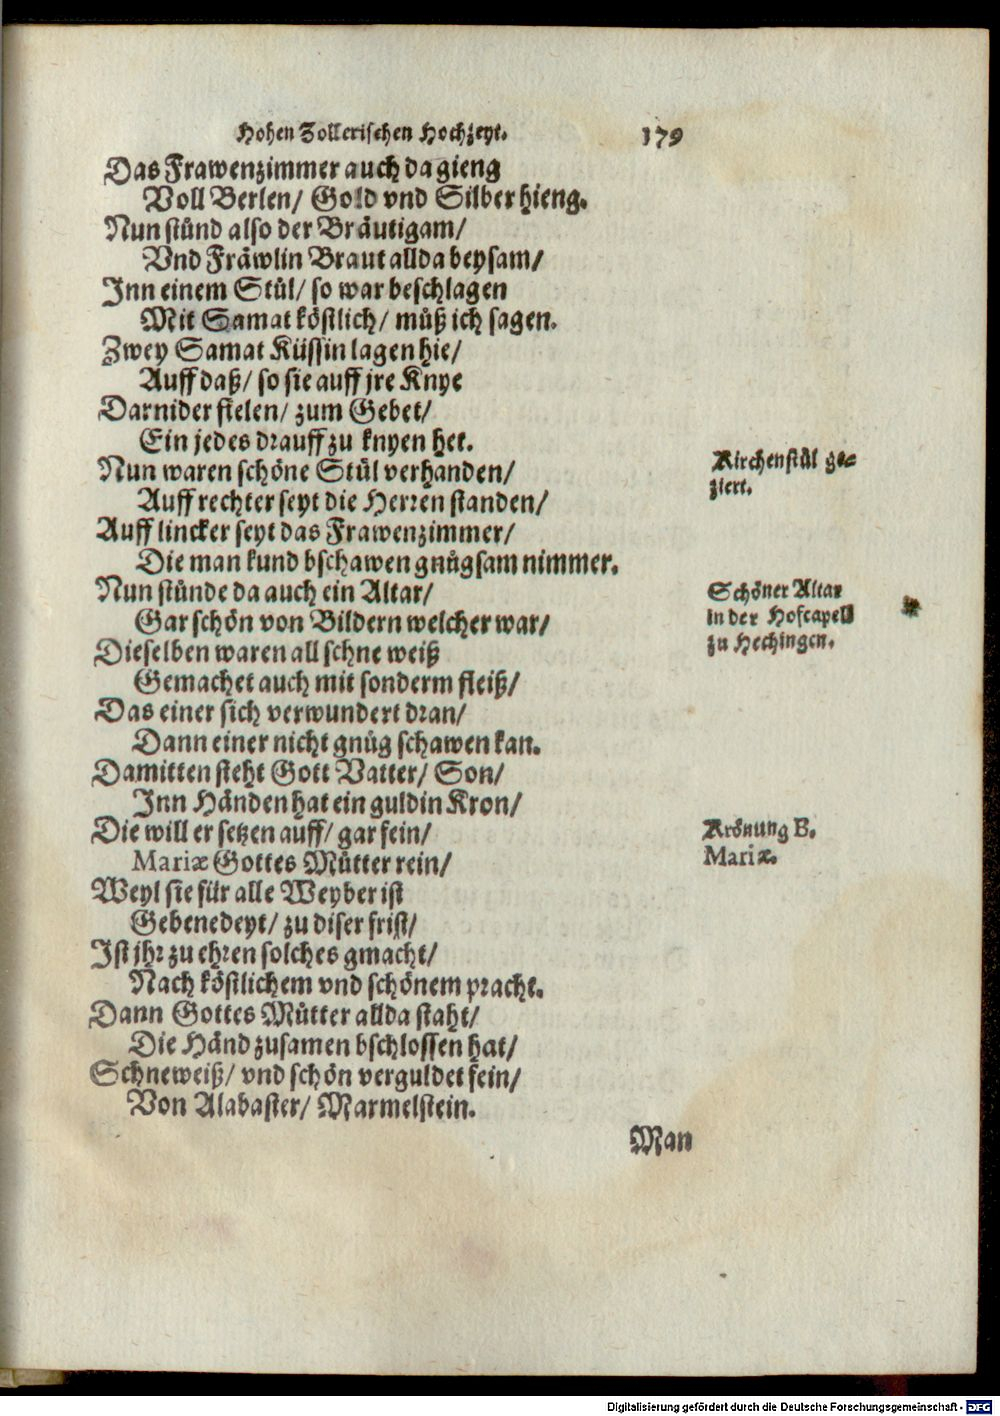 Hohen Zollerischen Hochzeyt. 179
Das Frawenzimmer auch da gieng
Voll Berlen/ Gold vnd Silber hieng.
Nun stůnd also der Bräutigam/
Vnd Fräwlin Braut allda beysam/
Inn einem Stůl/ so war beschlagen
Mit Samat köstlich/ můß ich sagen.
Zwey Samat Küssin lagen hie/
Auff daß/ so sie auff jre Knye
Darnider fielen/ zum Gebet/
Ein jedes drauff zu knyen het.
Nun waren schöne Stůl verhanden/
Kirchenstůl ge-
ziert.
Auff rechter seyt die Herren standen/
Auff lincker seyt das Frawenzimmer/
Die man kund bschawen gnůgsam nimmer.
Nun stůnde da auch ein Altar/
Schöner Altar
in der Hofcapell
zu Hechingen.
Gar schön von Bildern welcher war/
Dieselben waren all schne weiß
Gemachet auch mit sonderm fleiß/
Das einer sich verwundert dran/
Dann einer nicht gnůg schawen kan.
Damitten steht Gott Vatter/ Son/
Inn Händen hat ein guldin Kron/
Die will er setzen auff/ gar fein/
Krönung B.
Mariæ.
Mariæ Gottes Můtter rein/
Weyl sie für alle Weyber ist
Gebenedeyt/ zu diser frist/
Ist jhr zu ehren solches gmacht/
Nach köstlichem vnd schönem pracht.
Dann Gottes Můtter allda staht/
Die Händ zusamen bschlossen hat/
Schneweiß/ vnd schön verguldet fein/
Von Alabaster/ Marmelstein.
Man
Digitalisierung gefördert durch die Deutsche Forschungsgemeinschaft - DFG